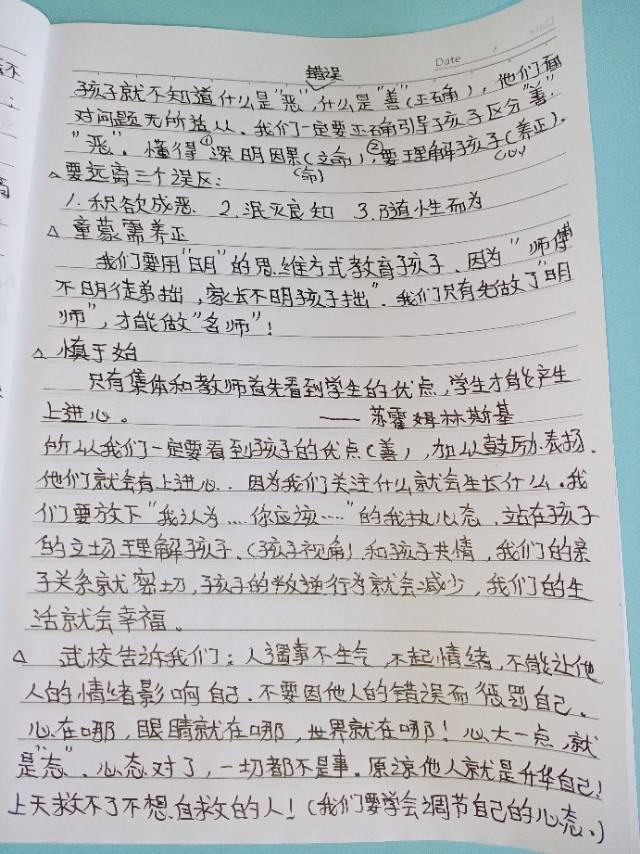 Date
错误
孩子就不知道什么是"恶",什么是"善"(正确),他们面
对问题无所适从。我们一定要正确引导孩子区分"善"
"恶"。懂得①深明因果(立命),②要理解孩子(养正)。
(命)
△要远离三个误区:
1.积欲成恶 2.泯灭良知 3.随性而为
△ 童蒙需养正
我们要用"明"的思维方式教育孩子,因为"师傅
不明徒弟拙,家长不明孩子拙"。我们只有先做了"明
师",才能做"名师"!
△ 慎于始
只有集体和教师首先看到学生的优点,学生才能产生
上进心。 —— 苏霍姆林斯基
所以我们一定要看到孩子的优点(善),加以鼓励、表扬.
他们就会有上进心.因为我们关注什么就会生长什么。我
们要放下"我认为....你应该....."的我执心态,站在孩子
的立场理解孩子、(孩子视角)和孩子共情,我们的亲
子关系就密切,孩子的叛逆行为就会减少,我们的生
活就会幸福。
△ 武校告诉我们:人遇事不生气,不起情绪,不能让他
人的情绪影响自己.不要因他人的错误而惩罚自己。
心在哪,眼睛就在哪,世界就在哪!心大一点,就
是"态"。心态对了,一切都不是事。原谅他人就是升华自己!
上天救不了不想自救的人!(我们要学会调节自己的心态。)